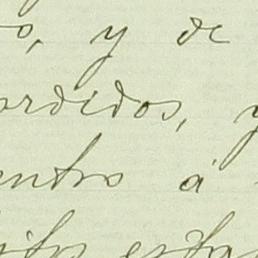 o, y de
ordidos, y
entro á
itos estas